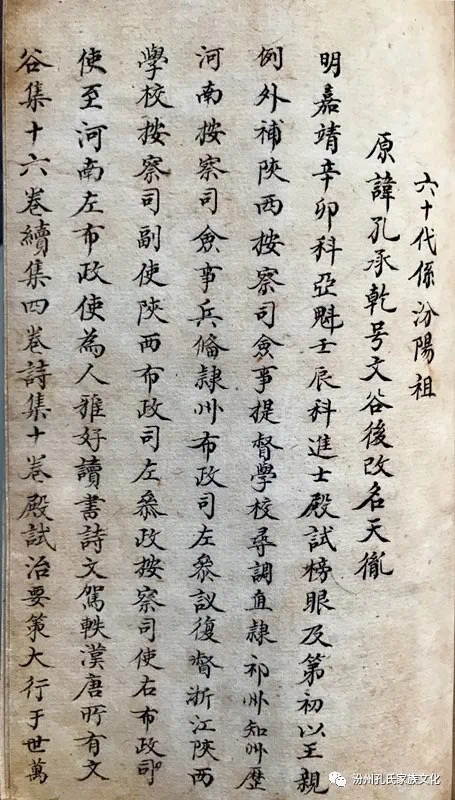 六十代係汾陽祖
原諱孔承乾号文谷後改名天胤
明嘉靖辛卯科亞魁壬辰科進士殿試榜眼及第初以王親
例外補陝西按察司僉事提督學校尋調直隷祁州知州歷
河南按察司僉事兵俻隷州布政司左叅議復督浙江陝西
學校按察司副使陝西布政司左叅政按察司使右布政司
使至河南左布政使為人雅好讀書詩文駕軼漢唐所有文
谷集十六巻續集四巻詩集十巻殿試治要策大行于世萬
汾州孔氏家族文化